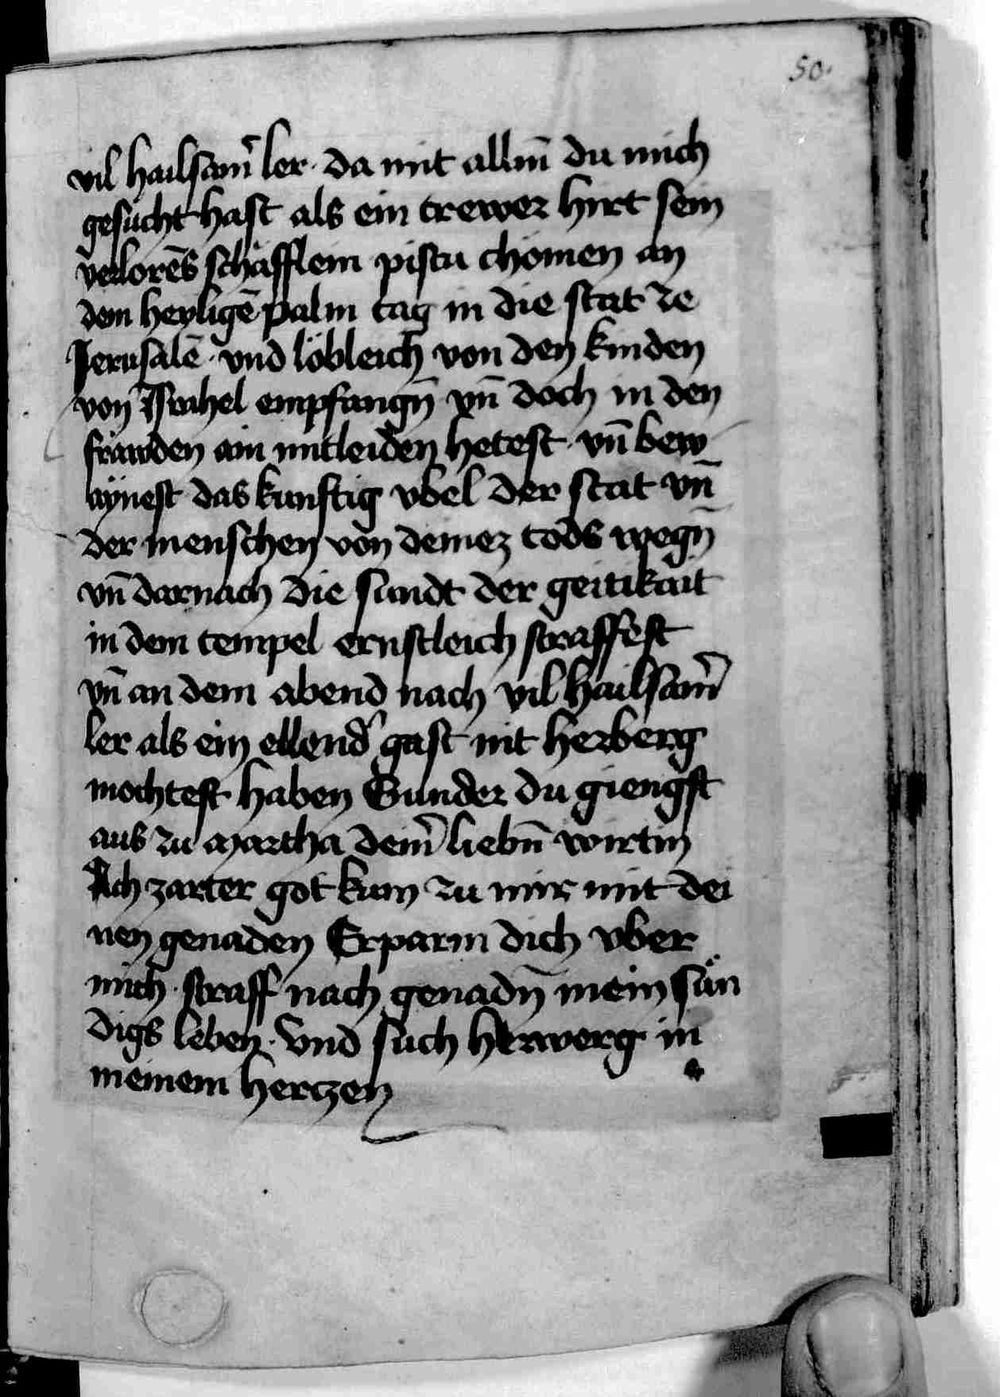 50.
vil hailsam̄ ler · da mit allm̄ du mich
gesucht hast als ein trewer hirt sein
verlorēs schäfflein pistu chomen an
dem heyligē palm tag in die stat ze
Jerusalē · vnd löbleich von den kinden
von Israhel empfangn̄ vn̄ doch in den
fräwden ain mitleiden hetest · vn̄ bew
aynest das kunftig vbel der stat vn̄
der menschen von deinez tods wegn̄
vn̄ darnach die sundt der geitikait
in dem tempel ernstleich straffest
vn̄ an dem abend nach vil hailsam̄
ler als ein ellend' gast nit herberg
mochtest haben Sunder du giengst
aus zu martha deim̄ liebn̄ wirtin
Ach zarter got kum zu mir mit dei
nen genaden Erparm dich vber
mich · straff nach genadn̄ mein sün
digs leben · Vnd such herwerg in
meinem herczen